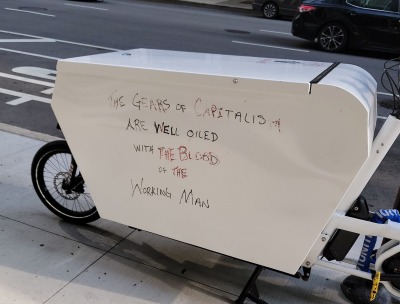 THE GEARS OF CAPITALISM
ARE WELL OILED
WITH THE BLOOD
OF THE
WORKING MAN